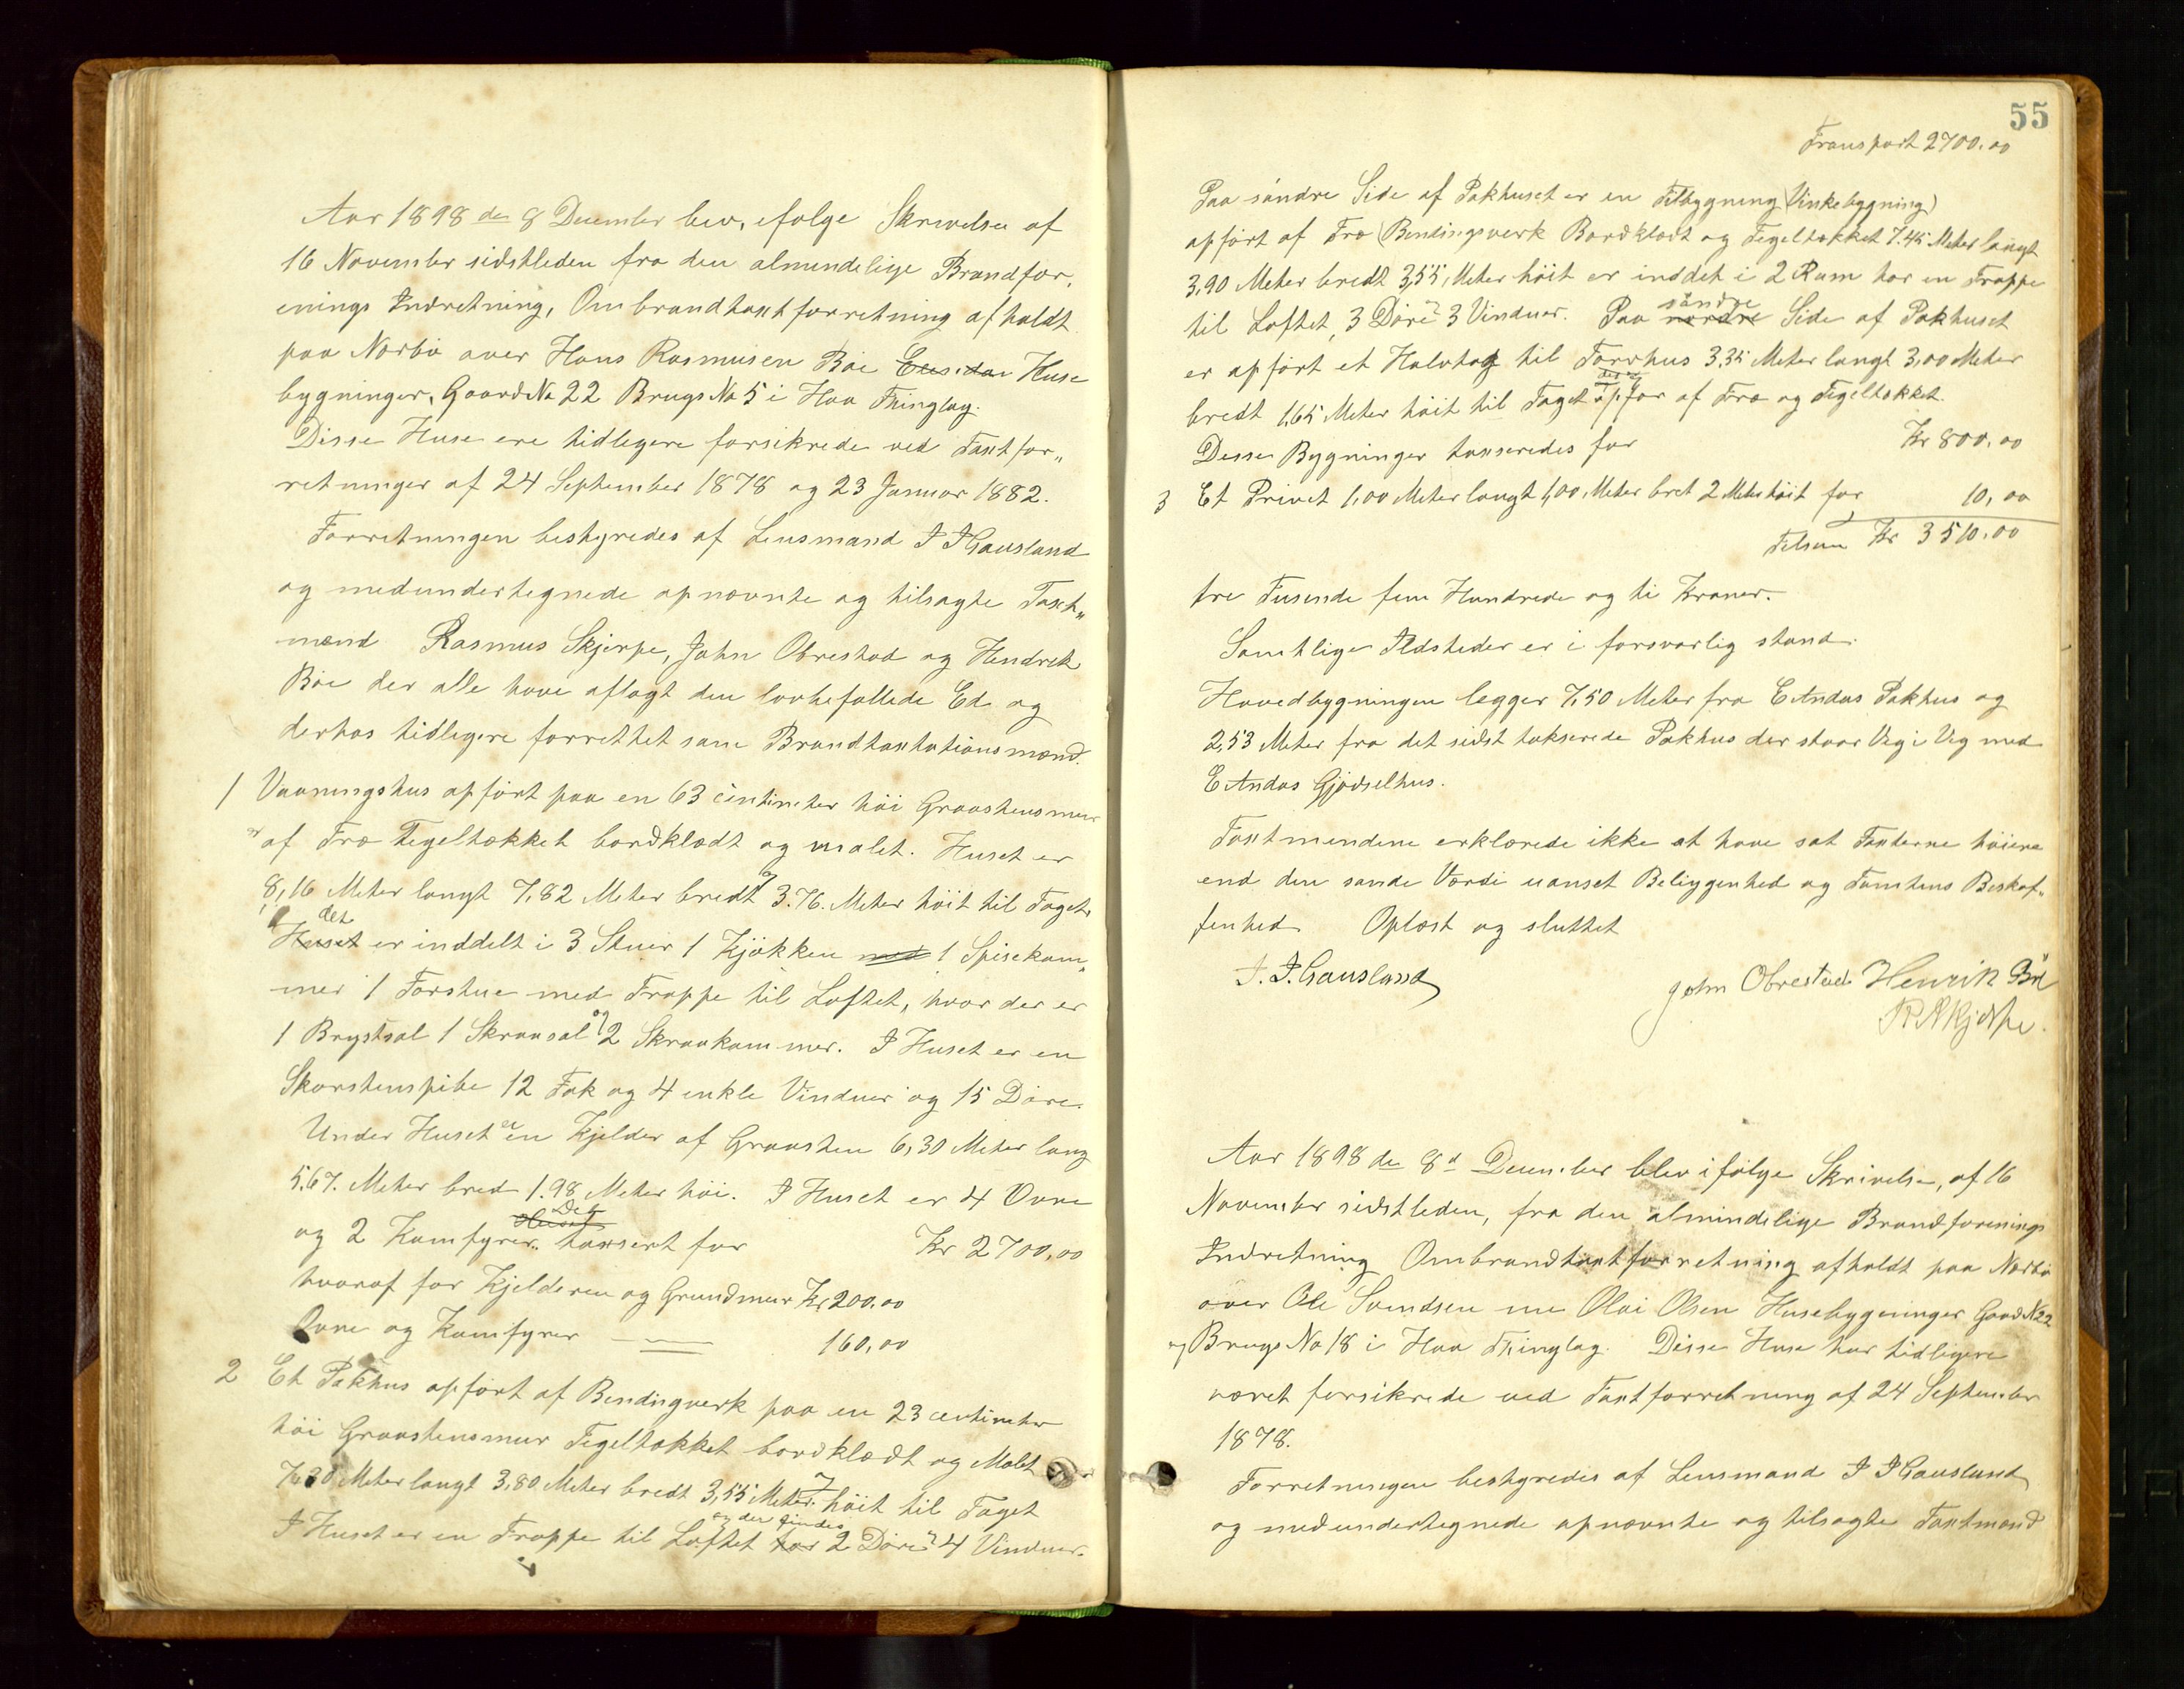 Aar 1898 den 8 December blev, ifølge Skrivelse af
16 November sidstleden fra den almindelige Brandfor,
enings Indretning, Ombrandtaxtforretning afholdt
paa Nærbø over Hans Rasmusen Bøe Huse
bygninger, Gaard No 22 Brugs No 5 i Haa Thinglag.
Disse Huse ere tidligere forsikrede ved Taxtfor„
retninger af 24 September 1878 og 23 Januar 1882.
Forretningen bestyredes af Lensmand I I Gausland
og medundertegnede opnævnte og tilsagte Taxt„
mænd Rasmus Skjerpe, John Obrestad og Hendrik
Bøe der alle have aflagt den lovbefallede Ed og
derhos tidligere forrettet som Brandtaxtationsmænd.
1 Vaaningshus opført paa en 63 centimeter høi Graastensmur
af Træ Tegeltækket bordklædt og malet. Huset er
8,16 Meter langt 7,82 Meter bredt og 3.76. Meter høit til Taget,
Huset det er inddelt i 3 Stuer 1 Kjøkken med 1 Spisekam„
mer 1 Forstue med Trappe til Loftet, hvor der er
1 Brystsal 1 Skraasal og 2 Skraakammer. I Huset er en
Skorstenspibe 12 Fak og 4 enkle Vinduer og 15 Døre.
Under Huset er en Kjelder af Graasten 6,30 Meter lang
5.67. Meter bred 1.98 Meter høi. I Huset er 4 Ovne
og 2 Kamfyrer. Huset Det taxsert for Kr 2700,00
hvoraf for Kjelderen og Grundmur Kr 200.00
Ovne og Kamfyrer 160,00
2 Et Pakhus opført af Bindingverk paa en 23 centimeter
høi Graastensmur Tegeltækket bordklædt og Malet
7,30 Meter langt 3,80 Meter bredt 3,55 Meter høit til Taget
I Huset er en Trappe til Loftet har og der findes 2 Døre og 4 Vinduer.
55
Transport 2700.00
Paa søndre Side af Pakhuset er en Tilbygning (Vinkebygning)
opført af Træ (Bindingsverk Bordklædt og Tegeltækket 7.45 Meter langt
3,90 Meter bredt 3,55 Meter høit er inddet i 2 Rum har en Trappe
til Loftet, 3 Døre og 3 Vinduer. Paa nordre søndre Side af Pakhuset
er opført et Halvtag til Torvhus 3,35 Meter langt 3,00 Meter
bredt 1,65 Meter høit til Taget opfør af Træ og Tegeltækket.
Disse Bygninger taxseredes for Kr 800,00
3 Et Privet 1,00 Meter langt 1,00 Meter bret 2 Meter høit for 10,00
Tilsum Kr 3510.00
tre Tusende fem Hundrede og ti Kroner.
Samtlige Ildsteder er i forsvarlig stand.
Hovedbygningen legger 7,50 Meter fra E Andas Pakhus og
2,53 Meter fra det sidst takserede Pakhus der staar Veg i Veg med
E Andas Gjødselhus.
Taxtmændene erklærede ikke at have sat Taxterne høiere
end den sande Værdi uanset Beliggenhed og Tomtens Beskaf„
fenhed. Oplæst og sluttet
I. I. Gausland John Obrestad Henrik Bø
R R Skjerpe.
Aar 1898 den 8de December blev ifølge Skrivelse, af 16
November sidstleden, fra den almindelige Brandforenings
Indretning Ombrandtaxtforretning afholdt paa Nærbø
over Ole Svendsen nu Olai Olsen Husebygninger Gaard No 22
og Brugs No 18 i Haa Thinglag. Disse Huse har tidligere
været forsikrede ved Taxtforretning af 24 September
1878.
Forretningen bestyredes af Lensmand I I Gausland
og medundertegnede opnævnte og tilsagte Taxtmænd